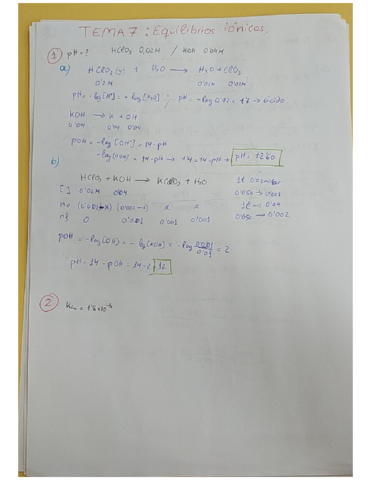 TEMA 7: Equilibrios iónicos.
1 pH=? HClO₃ 0,02M / KOH 0'04M
a) HClO₃ + H₂O → H₃O + ClO₃
0'02M 0'02M 0'02M
pH = -log[H⁺] = -log[H₃O] ; pH = -log 0'02 = 1'7 → ácido
KOH → K + OH
0'04 0'04 0'04
pOH = -log[OH⁻] = 14-pH
-log[KOH] = 14-pH → 14 = 14-pH → pH = 12'60
b)
HClO₃ + KOH → KClO₃ + H₂O
[ ] 0'02M 0'04
0'050 → 0'001
1L → 0'04
0'050 → 0'002
nf 0 0'001 0'001 0'001
pOH = -log[OH] = -log[KOH] = -log 0'001/0'01 = 2
pH = 14 - pOH = 14-2 = 12
2